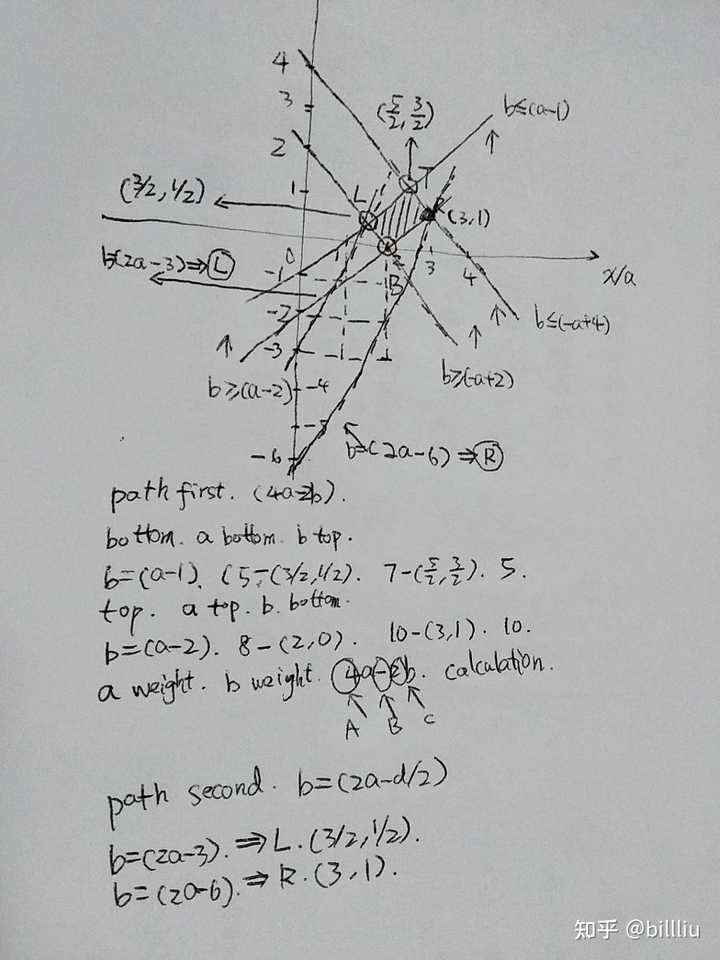 4
3
2
1
0
-1
-2
-3
-4
-5
-6
(5/2, 3/2)
b≤(a-1)
T
L
(3/2, 1/2)
R
(3,1)
b=(2a-3)⇒Ⓛ
2
3
4
B
x/a
b≤(-a+4)
b≥(-a+2)
b≥(a-2)
b=(2a-6)⇒Ⓡ
path first. (4a-2b).
bottom. a bottom. b top.
b=(a-1). (5-(3/2,1/2). 7-(5/2,3/2). 5.
top. a top. b. bottom.
b=(a-2). 8-(2,0). 10-(3,1). 10.
a weight. b weight. 4a-2b. calculation.
A B C
path second. b=(2a-d/2)
b=(2a-3).⇒L.(3/2,1/2).
b=(2a-6).⇒R.(3,1).
知乎 @billliu